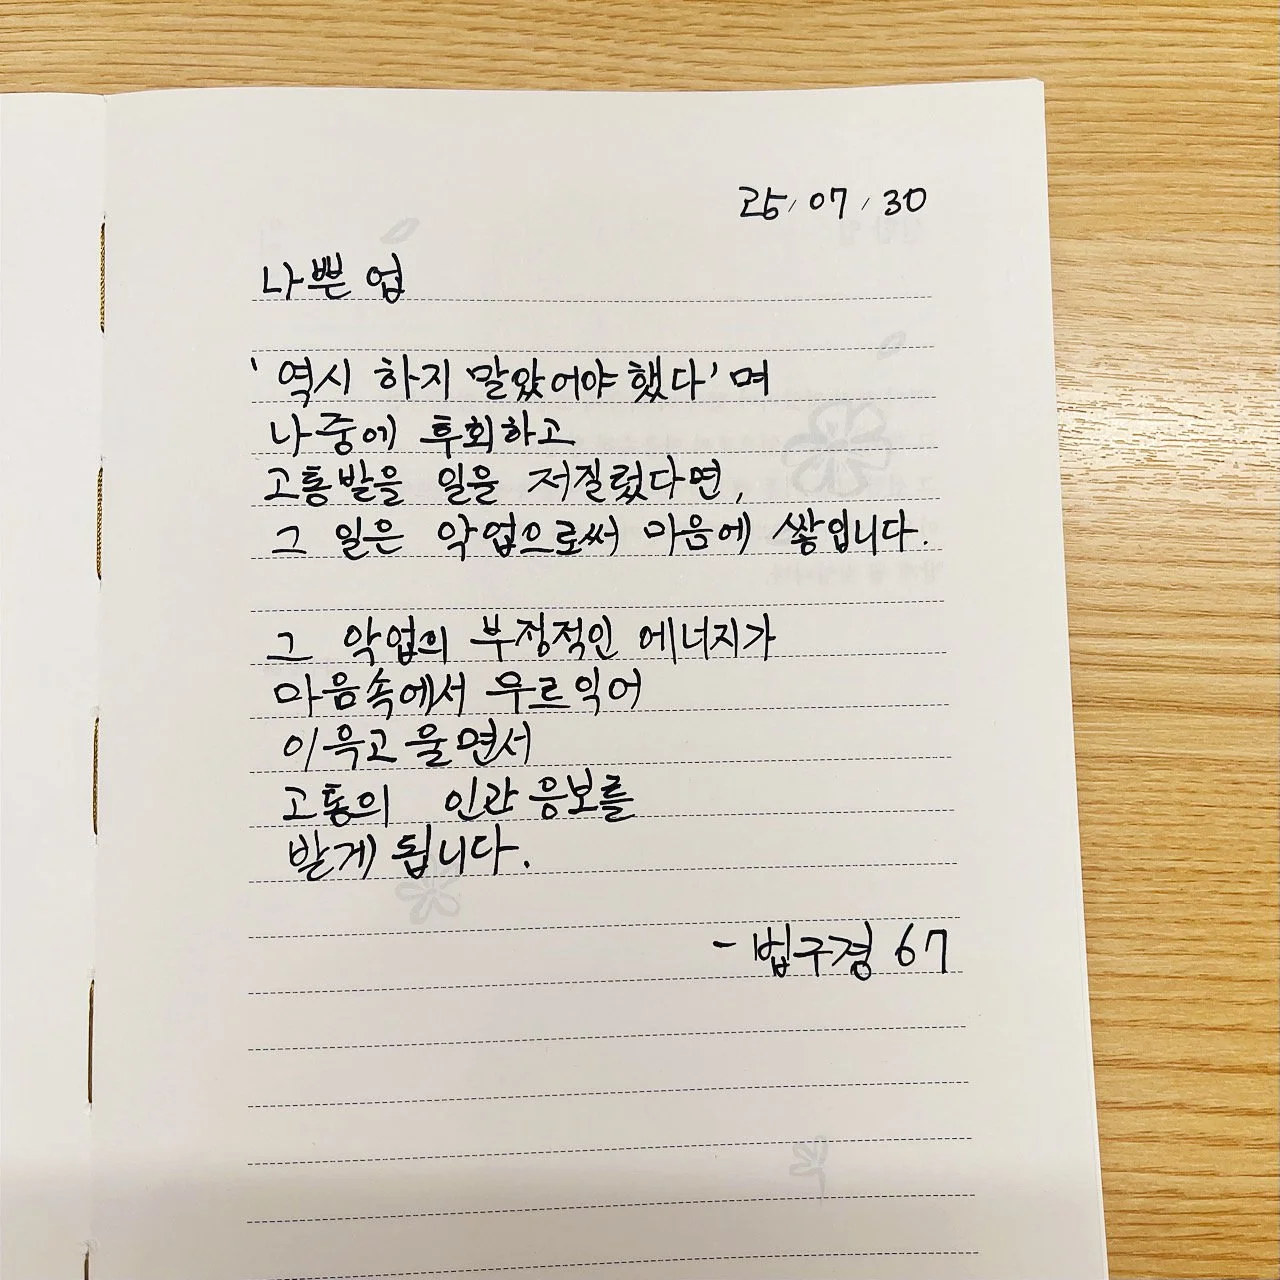 25/07/30
나쁜 업
'역시 하지 말았어야 했다'며
나중에 후회하고
고통받을 일을 저질렀다면,
그 일은 악업으로써 마음에 쌓입니다.
그 악업의 부정적인 에너지가
마음속에서 무르익어
이윽고 울면서
고통의 인과응보를
받게 됩니다.
- 법구경 67